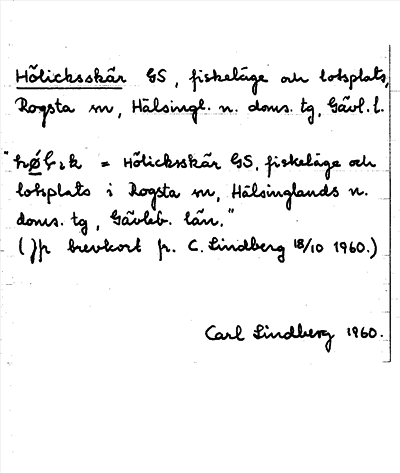 Hölicksskär GS, fiskeläge och lotsplats,
Rogsta sn, Hälsingl. n. doms. tg, Gävl. l.
= Hölicksskär GS, fiskeläge och
lotsplats i Rogsta sn, Hälsinglands n.
doms. tg, Gävleb. län."
brevkort fr. C. Lindberg 18/10 1960.)
Carl Lindberg 1960.